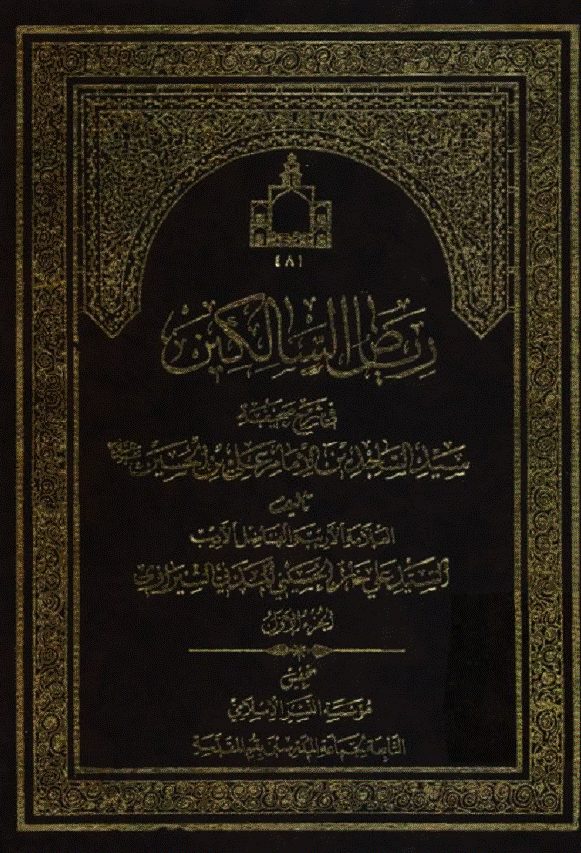 ٤٨١
رياض السالكين
في شرح صحيفة
سيد الساجدين الإمام علي بن الحسين
تأليف
العلامة الأريب والفاضل الأديب
السيد علي خان الحسيني المدني الشيرازي
الجزء الأول
تحقيق
مؤسسة النشر الإسلامي
التابعة لجماعة المدرسين بقم المقدسة